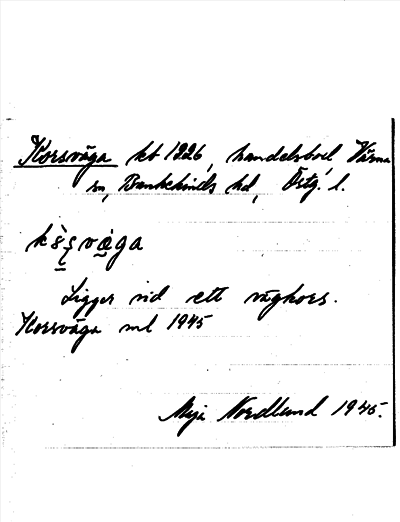 Korsväga kb 1226, handelsbod Värna
sn, Bankekinds hd, Östg. l.
Ligger vid ett vägkors.
Korsväga ml 1945
Maja Nordlund 1945.